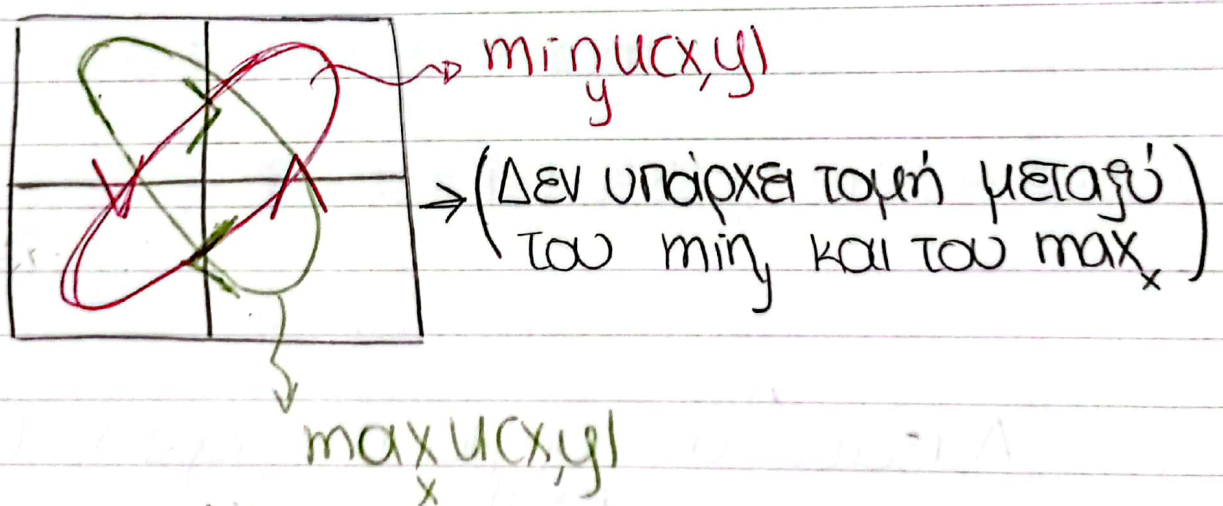 min u(x,y)
y
→ (Δεν υπάρχει τομή μεταξύ
του min_y και του max_x)
max u(x,y)
x